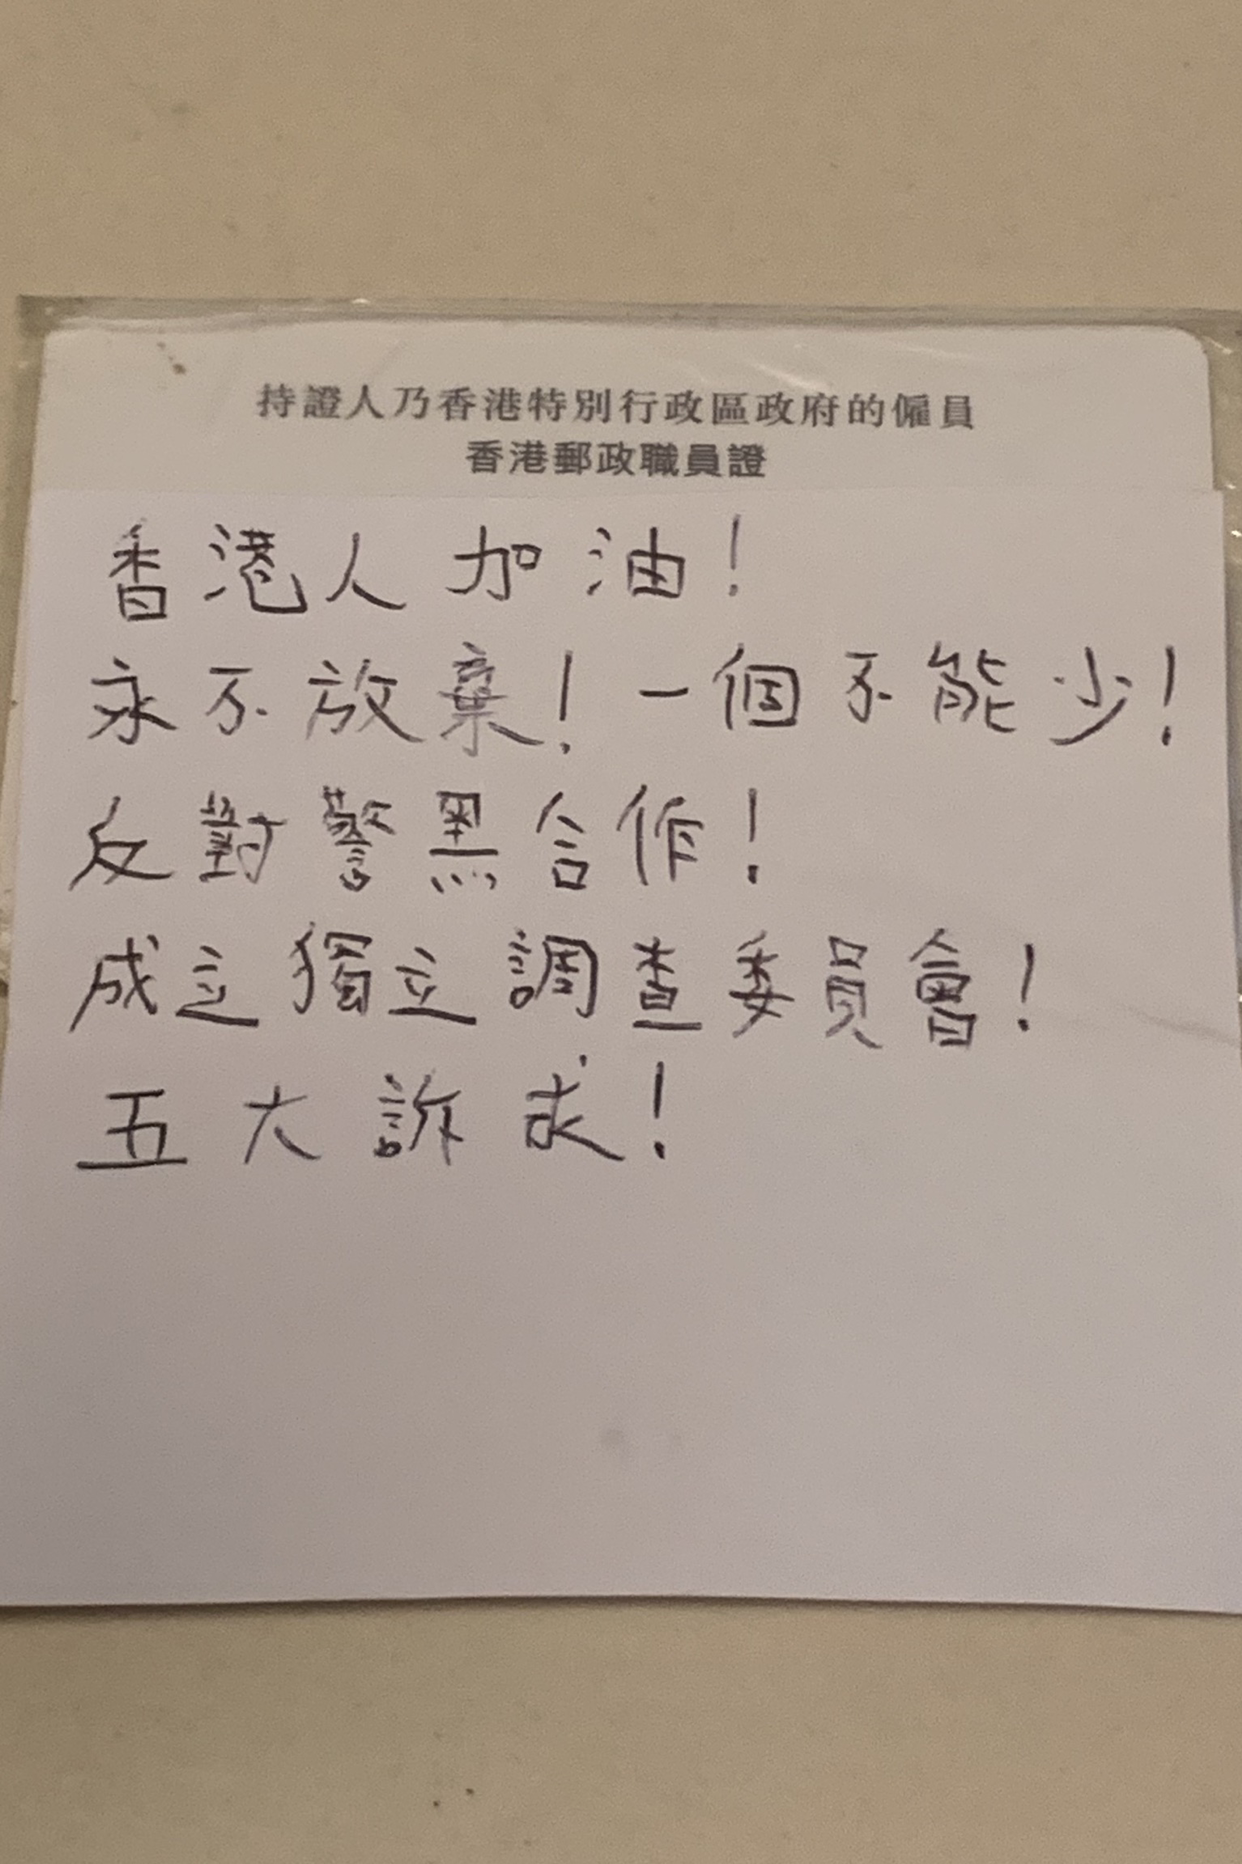 持證人乃香港特別行政區政府的僱員
香港郵政職員證
香港人加油！
永不放棄！一個不能少！
反對警黑合作！
成立獨立調查委員會！
五大訴求！